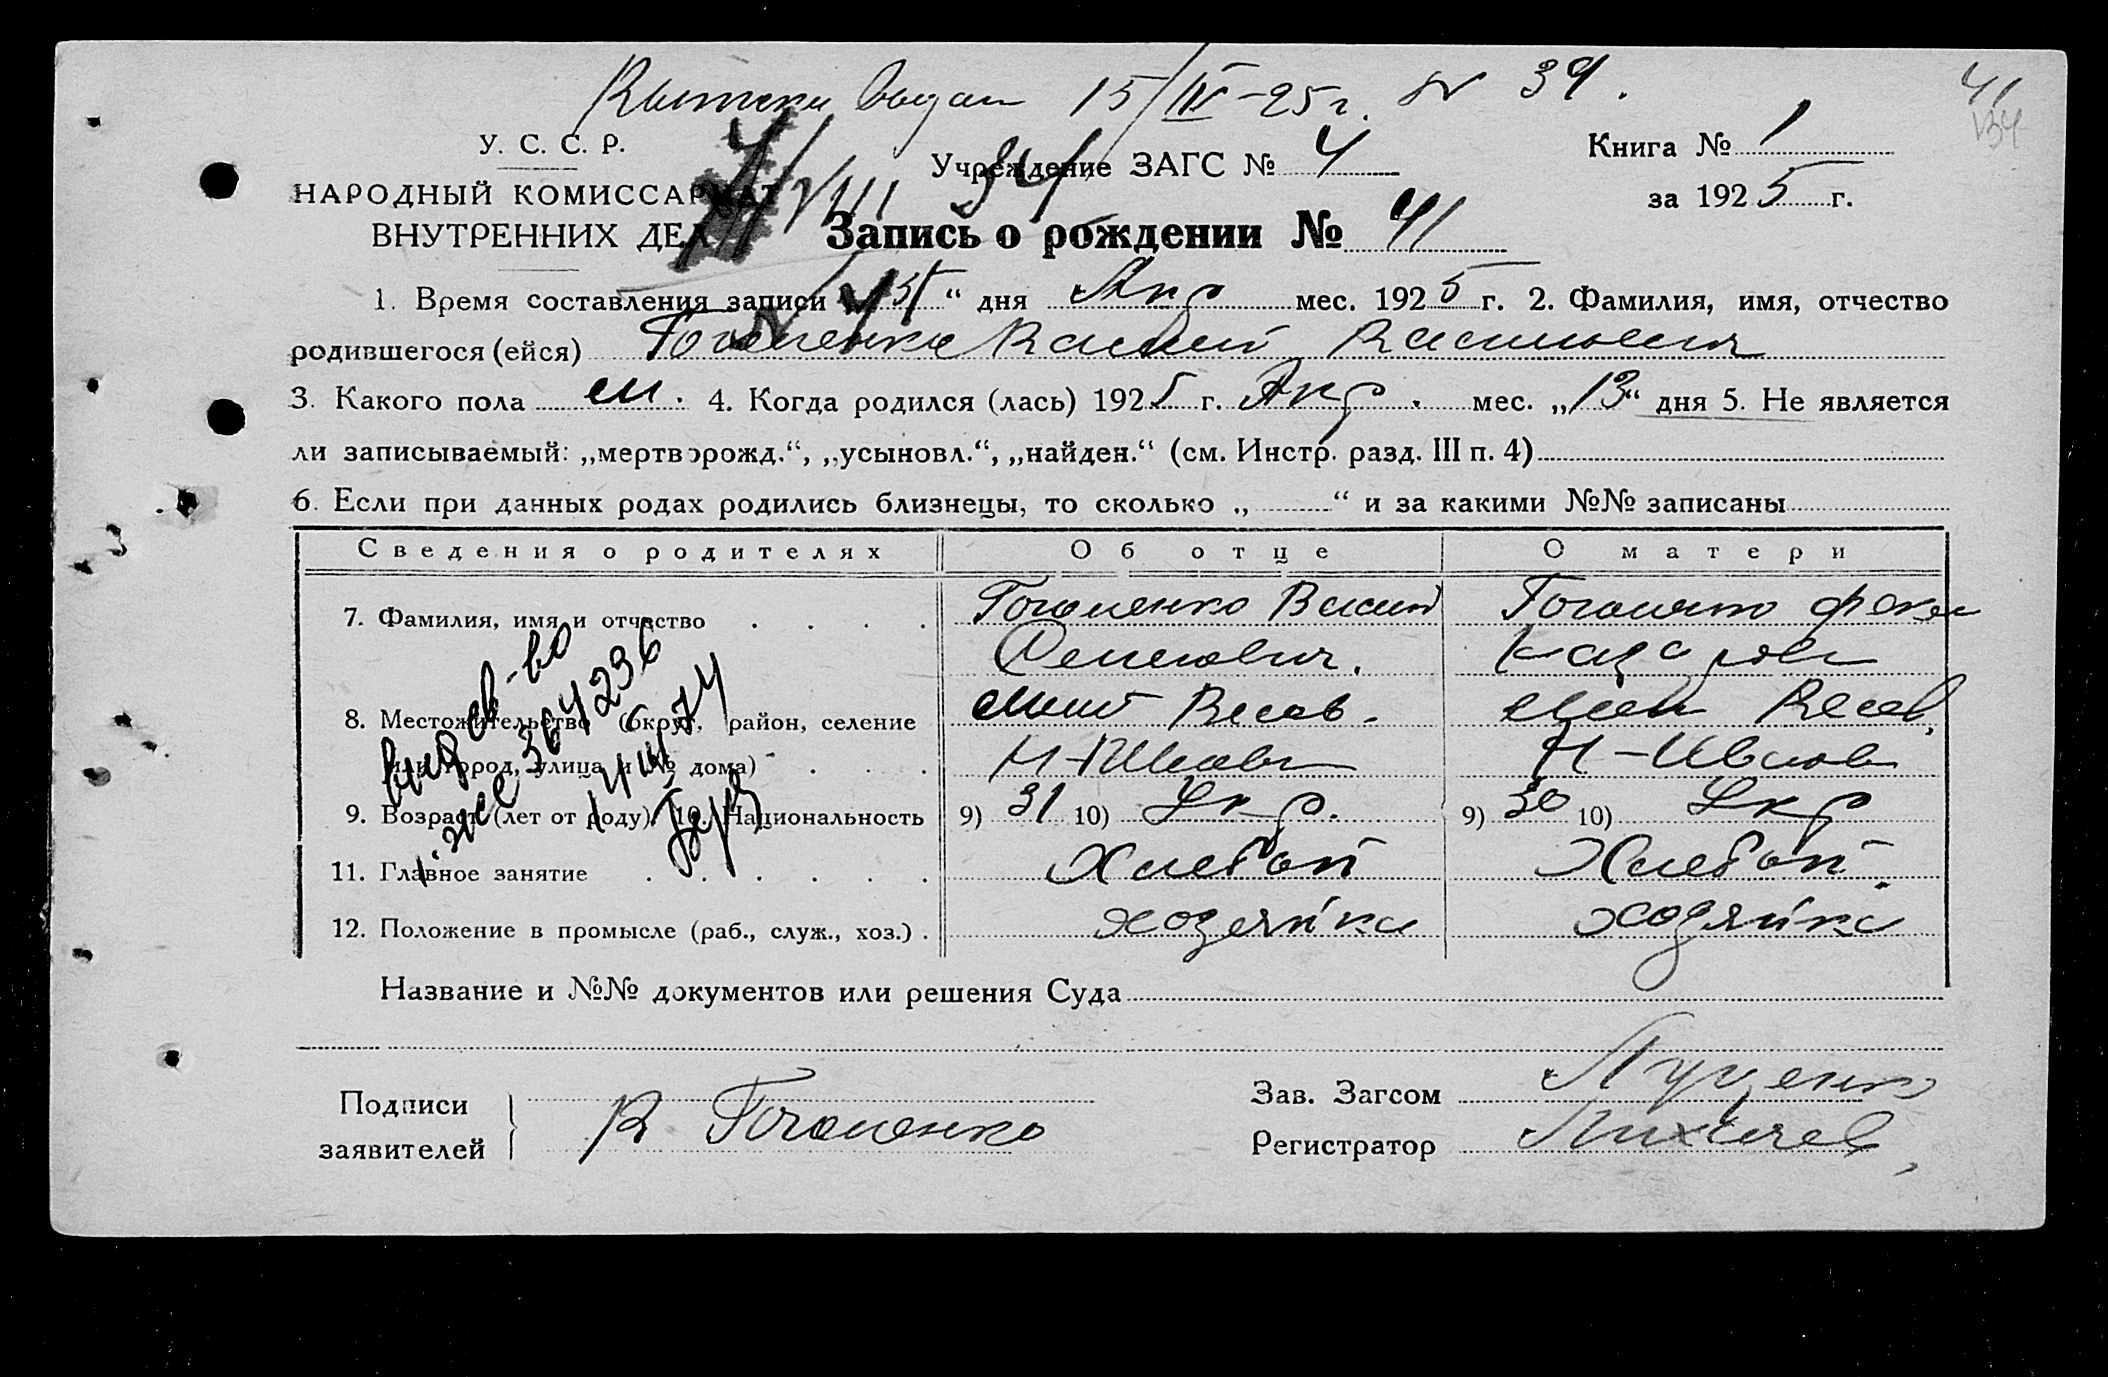 15/IV-25 г. № 34.
41
134
У. С. С. Р.
НАРОДНЫЙ КОМИССАРИАТ
ВНУТРЕННИХ ДЕЛ
Учреждение ЗАГС № 4
Книга № 1
за 1925 г.
34
Запись о рождении № 41
1. Время составления записи „15“ дня Апр мес. 1925 г. 2. Фамилия, имя, отчество
родившегося (ейся) Гоголенко Василий Васильевич
3. Какого пола м. 4. Когда родился (лась) 1925 г. Апр. мес. „13“ дня 5. Не является
ли записываемый: „мертворожд.“, „усыновл.“, „найден.“ (см. Инстр. разд. III п. 4)
6. Если при данных родах родились близнецы, то сколько „ “ и за какими №№ записаны
Сведения о родителях Об отце О матери
7. Фамилия, имя и отчество Гоголенко Васил
8. Местожительство (округ, район, селение
или город, улица и № дома)
9. Возраст (лет от роду) 10. Национальность 9) 31 10) Укр. 9) 30 10) Укр
11. Главное занятие Хлебоп Хлебоп.
12. Положение в промысле (раб., служ., хоз.) хозяйка хозяйка
выд св-во
364236
Название и №№ документов или решения Суда
Подписи
заявителей В Гоголенко
Зав. Загсом Луценко
Регистратор